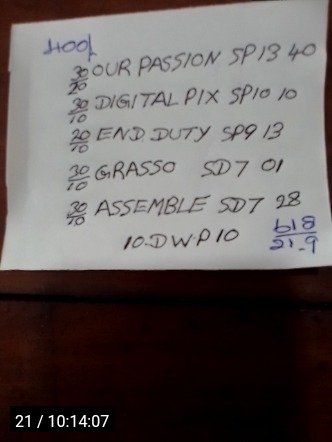 HOOF
30/20 OUR PASSION SP13 40
30/10 DIGITAL PIX SP10 10
20/10 END DUTY SP9 13
30/10 GRASSO SD7 01
30/10 ASSEMBLE SD7 28
10.DW.P10 618/21-9
21 / 10:14:07